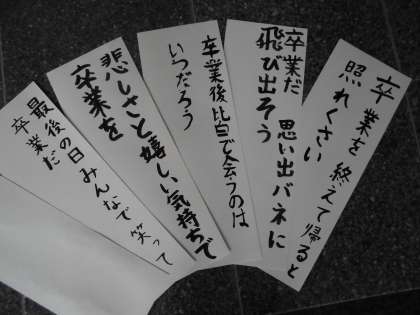 卒業を終えて帰ると
照れくさい
卒業だ 思い出バネに
飛び出そう
卒業後皆で会うのは
いつだろう
悲しさと嬉しい気持ちで
卒業を
最後の日みんなで笑って
卒業だ